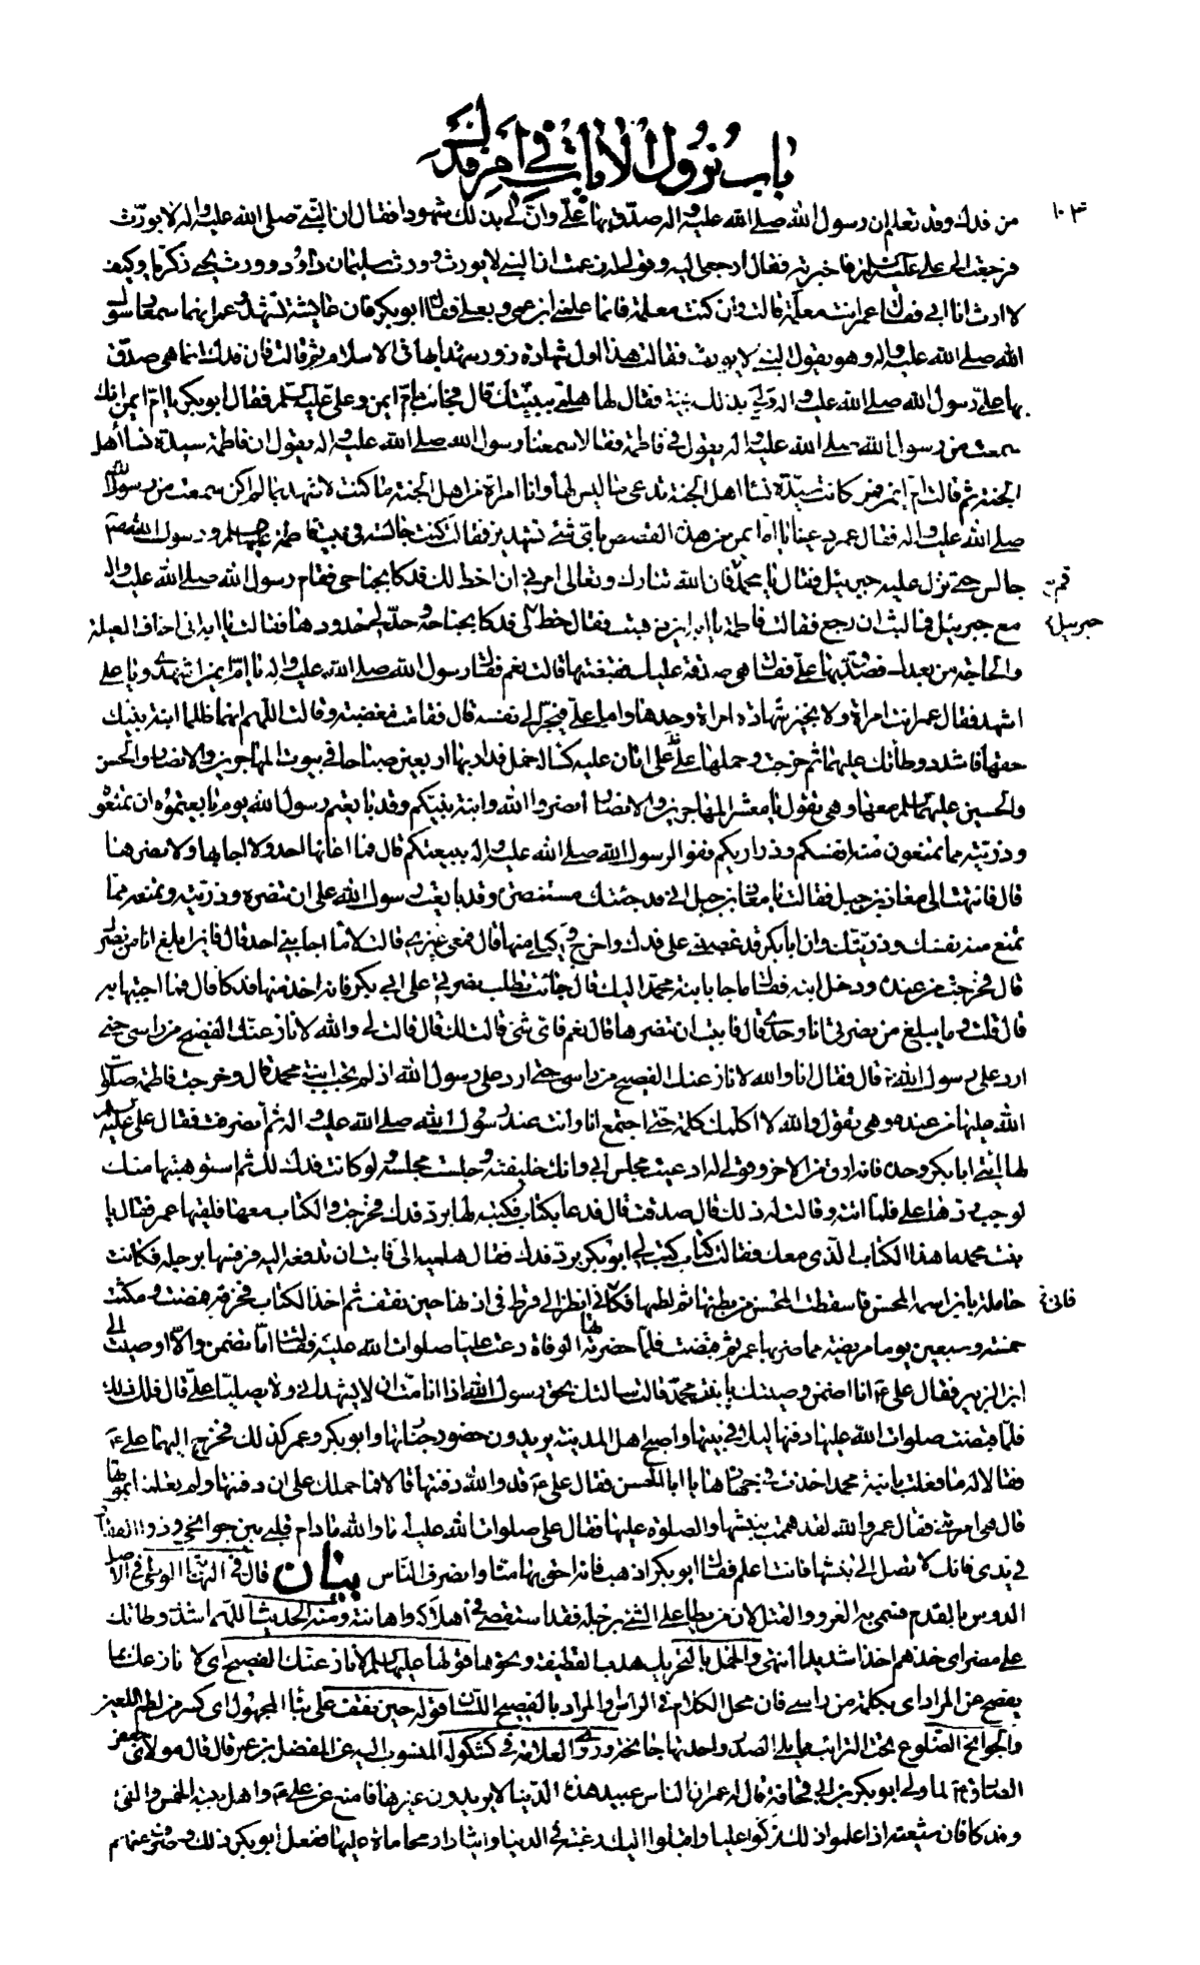 باب نزول الايات في امر فدك
١٠٣
من فدك وقد تعلم ان رسول الله صلى الله عليه واله صدق بها علىّ وان لى بذلك شهودا فقال ان النبي صلى الله عليه واله لا يورّث
فرجعت الى على عليه السلم فاخبرته فقال ارجعى اليه وقولى له زعمت ان النبي لا يورث وورث سليمان داود وورث يحيى زكريا وكيف
لا ارث انا ابى فقال عمر انت معلمة قالت وان كنت معلمة فانما علمنى ابن عمى وبعلى فقال ابو بكر فان عايشة تشهد وعمر انهما سمعا رسول
الله صلى الله عليه واله وهو يقول النبي لا يورث فقالت هذا اول شهادة زور شهدا بها فى الاسلام ثم قالت فان فدك انما هى صدّق
بها علىّ رسول الله صلى الله عليه واله ولى بذلك بينة فقال لها هلمى ببينتك قال فجاءت بام ايمن وعلى عليه السلم فقال ابو بكر يا ام ايمن انك
سمعت من رسول الله صلى الله عليه واله يقول فى فاطمة فقالا سمعنا رسول الله صلى الله عليه واله يقول ان فاطمة سيدة نساء اهل
الجنة ثم قالت ام ايمن فمن كانت سيدة نساء اهل الجنة تدعى ما ليس لها وانا امراة من اهل الجنة ما كنت لاشهد بما لم اكن سمعت من رسول الله
صلى الله عليه واله فقال عمر دعينا يا ام ايمن من هذه القصص باىّ شئ تشهدين فقالت كنت جالسة فى بيت فاطمة عليها السلم ورسول الله ص
جالس حتى نزل عليه جبرئيل فقال يا محمد قم فان الله تبارك وتعالى امرنى ان اخط لك فدكا بجناحى فقام رسول الله صلى الله عليه واله
مع جبرئيل فما لبث ان رجع فقالت فاطمة يا ابه اين ذهبت فقال خط جبرئيل لى فدكا بجناحه وحدّ لى حدودها فقالت يا ابه انى اخاف العيلة
والحاجة من بعدك فصدّق بها علىّ فقال هى صدقة عليك فقبضتها قالت نعم فقال رسول الله صلى الله عليه واله يا ام ايمن اشهدى ويا على
اشهد فقال عمر انت امراة ولا نجيز شهادة امراة وحدها واما على فيجر الى نفسه قال فقامت مغضبة وقالت اللهم انهما ظلما ابنة نبيك
حقها فاشدد وطاتك عليهما ثم خرجت وحملها على على اتان عليه كساء له خمل فدار بها اربعين صباحا فى بيوت المهاجرين والانصار والحسن
والحسين عليهما السلم معها وهى تقول يا معشر المهاجرين والانصار انصروا الله وابنة نبيكم وقد بايعتم رسول الله يوم بايعتموه ان تمنعوه
وذريته مما تمنعون منه انفسكم وذراريكم ففوا لرسول الله صلى الله عليه واله ببيعتكم قال فما اعانها احد ولا اجابها ولا نصرها
قال فانتهت الى معاذ بن جبل فقالت يا معاذ بن جبل انى قد جئتك مستنصرة وقد بايعت رسول الله على ان تنصره وذريته وتمنعه مما
تمنع منه نفسك وذريتك وان ابا بكر قد غصبنى على فدك واخرج وكيلى منها قال فمعى غيرى قالت لا ما اجابنى احد قال فاين ابلغ انا من نصرك
قال فخرجت من عنده ودخل ابنه فقال ما جاء بابنة محمد اليك قال جاءت تطلب نصرتى على ابى بكر فانه اخذ منها فدكا قال فما اجبتها به
قال قلت وما يبلغ من نصرتى انا وحدى قال فابيت ان تنصرها قال نعم قال فاىّ شئ قالت لك قال قالت لى والله لانازعنك الفصيح من راسى حتى
ارد على رسول الله ص قال فقال انا والله لانازعنك الفصيح من راسى حتى ارد على رسول الله اذ لم تجب ابنة محمد قال وخرجت فاطمة صلوات
الله عليها من عنده وهى تقول والله لا اكلمك كلمة حتى اجتمع انا وانت عند رسول الله صلى الله عليه واله ثم انصرفت فقال على عليه السلم
لها ايتى ابا بكر وحده فانه ارق من الاخر وقولى له ادعيت مجلس ابى وانك خليفته وجلست مجلسه ولو كانت فدك لك ثم استوهبتها منك
لوجب ردها علىّ فلما اتته وقالت له ذلك قال صدقت قال فدعا بكتاب فكتبه لها برد فدك فخرجت والكتاب معها فلقيها عمر فقال يا
بنت محمد ما هذا الكتاب الذى معك فقالت كتاب كتب لى ابو بكر برد فدك فقال هلميه الىّ فابت ان تدفعه اليه فرفسها برجله فكانت
حاملة بابن اسمه المحسن فاسقطت المحسن من بطنها ثم لطمها فكانى انظر الى قرط فى اذنها حين نقفت ثم اخذ الكتاب فخرقه فمضت ومكثت
خمسة وسبعين يوما مريضة مما ضربها عمر ثم قبضت فلما حضرتها الوفاة دعت عليا صلوات الله عليه فقالت اما تضمن والا اوصيت الى
ابن الزبير فقال على ع انا اضمن وصيتك يا بنت محمد قالت سالتك بحق رسول الله اذا انا مت ان لا يشهدانى ولا يصليا علىّ قال فلك ذلك
فلما قبضت صلوات الله عليها دفنها ليلا فى بيتها واصبح اهل المدينة يريدون حضور جنازتها وابو بكر وعمر كذلك فخرج اليهما على ع
فقالا له ما فعلت بابنة محمد اخذت فى جهازها يا ابا الحسن فقال على ع قد والله دفنتها قالا فما حملك على ان دفنتها ولم تعلمنا بموتها
قال هى امرتنى فقال عمر والله لقد هممت بنبشها والصلوة عليها فقال على صلوات الله عليه اما والله ما دام قلبى بين جوانحى وذو الفقار
فى يدى فانك لا تصل الى نبشها فانت اعلم فقال ابو بكر اذهب فانه احق بها منا وانصرف الناس بيان قال فى النهاية الوطى فى الاصل
الدوس بالقدم فسمى به الغزو والقتل لان من يطا على الشئ برجله فقد استقصى فى اهلاكه واهانته ومنه الحديث اللهم اشدد وطاتك
على مضر اى خذهم اخذا شديدا انتهى والخمل بالتحريك هدب القطيفة ونحوها قولها عليها السلم لانازعنك الفصيح اى لا نازعك بما
يفصح عن المراد اى بكلمة من راسى فان محل الكلام فى الراس والمراد بالفصيح اللسان قوله حين نقفت على بناء المجهول اى كسر من لطم اللعين
والجوانح الضلوع تحت الترائب مما يلى الصدر واحدتها جانحة وروى العلامة فى كشكوله المنسوب اليه عن المفضل بن عمر قال قال مولاى جعفر
الصادق ع لما ولى ابو بكر بن ابى قحافة قال له عمر ان الناس عبيد هذه الدنيا لا يريدون غيرها فامنع عن على ع واهل بيته الخمس والفئ
وفدكا فان شيعته اذا علموا ذلك تركوا عليا واقبلوا اليك رغبة فى الدنيا وايثارا ومحاماة عليها ففعل ابو بكر ذلك وصرف عنهم